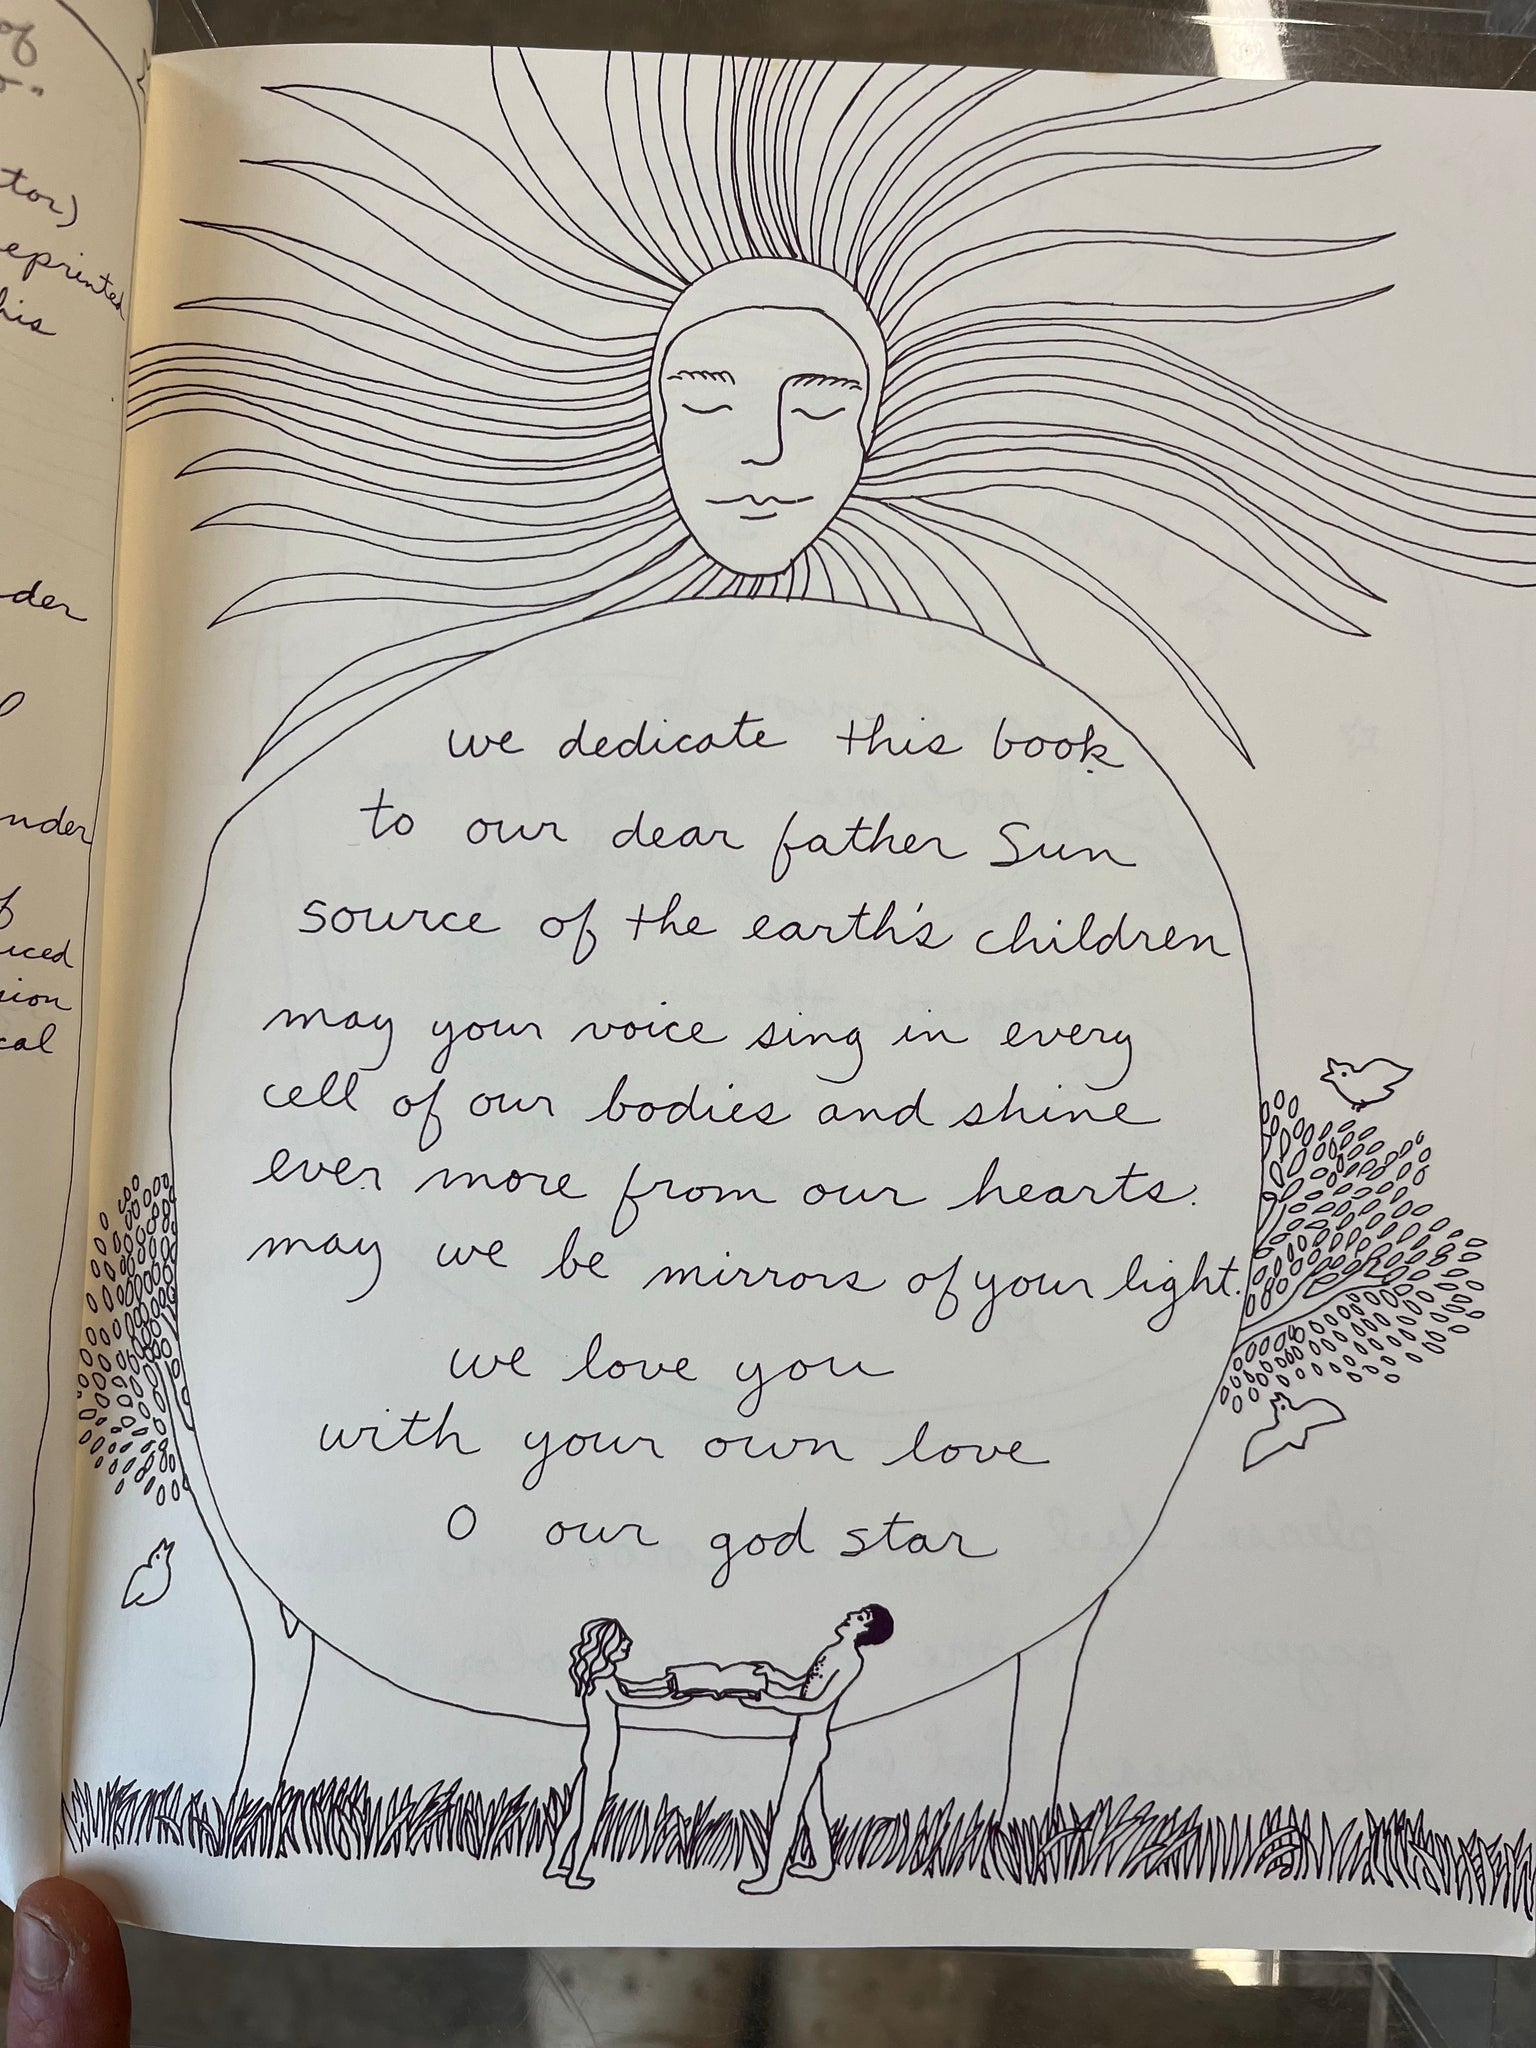 of
tor)
eprinted
his
der
nder
iced
sion
cal
we dedicate this book
to our dear father Sun
source of the earth's children
may your voice sing in every
cell of our bodies and shine
ever more from our hearts.
may we be mirrors of your light.
we love you
with your own love
O our god star